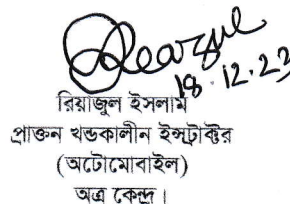 Reazul
18.12.23
রিয়াজুল ইসলাম
প্রাক্তন খন্ডকালীন ইন্সট্রাক্টর
(অটোমোবাইল)
অত্র কেন্দ্র।